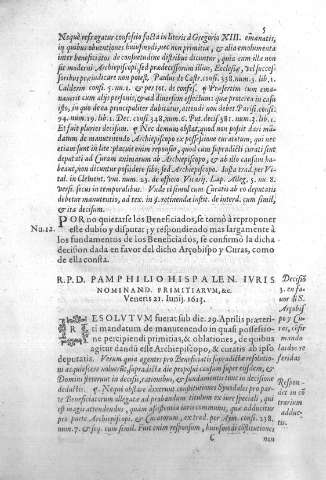 5
Neque refragatur confessio facta in literis à Gregorio XIII. emanatis,
in quibus obuentiones huiusmodi, nec non primitiæ, & alia emolumenta
inter beneficiatos de consuetudine distribui dicuntur, quia cum illa non
sit moderni Archiepiscopi, sed prædecessorum illius, Ecclesiæ, vel succes-
soribus præiudicare non potest. Paulus de Castr. consi. 338. num. 3. lib. 1.
Calderin consi. 5. nu. 1. & per tot. de confes. Præsertim cum ema-
nauerit cum aliss præfuit, & ad diuersum effectum: quæ præterea in casu
isto, in quo de ea principaliter dubitatur, attendi non debet Parisi. consi.
94. num. 19. lib. 1. Dec. consi. 348. num. 6. Put. deci 381. num. 3. lib. 1.
Et fuit pluries decisum. Nec demum obstat, quod non possit dari mã-
datum de manutenendo Archiepiscopo ex possessione curatorum, qui nec
etiam sunt in lite: quia cùm enim reponso, quod cum supradicti curati sint
deputati ad Curam animarum ab Archiepiscopo, & ab illo causam ha-
beant, non dicuntur possidere sibi, sed Archiepiscopo. Iuxta trad. per Vi-
tal. in Clebent. vni. num. 23. de officio Vicarij. Lap. Alleg. 5. nu. 8.
versi. secus in temporalibus. Vnde tã simul cum Curatis ab eo deputatis
debetur manutentio, ad tex. in §. retinendæ instit. de interd. cum simil.
& ita decisum.
Num.12. POR no quietarse los Beneficiados, se tornò à reproponer
este dubio y disputar; y respondiendo mas largamente à
los fundamentos de los Beneficiados, se confirmò la dicha
decision dada en favor del dicho Arçobispo y Curas, como
de ella consta.
R. P. D. PAMPHILIO HISPALEN. IVRIS
NOMINAND. PRIMITIARVM, &c.
Veneris 21. Iunij. 1613.
Decisiõ
3. en fa-
uor d S.
Arçobis
po y Cu-
ras, cõfir
mando
las dos re
feridas
RESOLVTVM fuerat sub die. 29. Aprilis præteri-
ti mandatum de manutenendo in quasi possessio-
ne percipiendi primitias, & oblationes, de quibus
agitur dandũ esse Archiepiscopo, & curatis ab ipso
deputatis. Verum quia agentes pro Beneficiatis supradictæ resolutio-
ni acquiescere noluerit, supradicta die proposui causam super eisdem, &
Domini steterunt in decisis, rationibus, & fundamentis tunc in decisione
deductis. Neque visa obstare diuersas constitutiones Synodales pro par-
te Beneficiatorum allegatæ ad probandum titulum ex iure speciali, qui
est magis attendendus, quam assistentia iuris communis, que adducitur
pro parte Archiepiscopi, & Curatorum, ex trad. per Aym. consi. 238.
num. 7. & seq. cum simil. Fuit enim responsum, huiusmodi constitutiones
Respon-
det in cõ
trarium
adduc-
tis.
C
nun